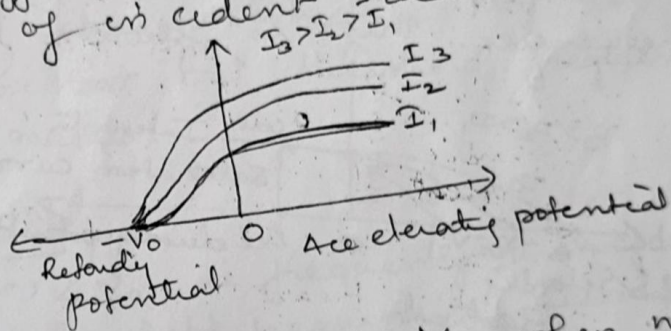 of incident
I₃ > I₂ > I₁
I₃
I₂
I₁
-V₀
O
Accelerating potential
Retarding
potential